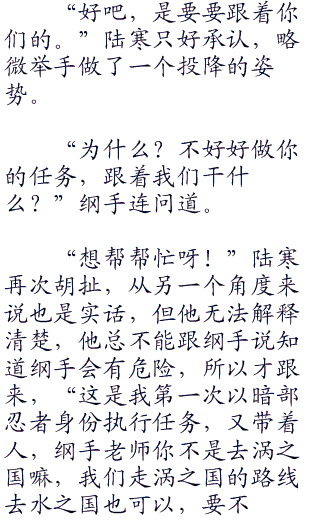 “好吧，是要要跟着你
们的。”陆寒只好承认，略
微举手做了一个投降的姿
势。
“为什么？不好好做你
的任务，跟着我们干什
么？”纲手连问道。
“想帮帮忙呀！”陆寒
再次胡扯，从另一个角度来
说也是实话，但他无法解释
清楚，他总不能跟纲手说知
道纲手会有危险，所以才跟
来，“这是我第一次以暗部
忍者身份执行任务，又带着
人，纲手老师你不是去涡之
国嘛，我们走涡之国的路线
去水之国也可以，要不